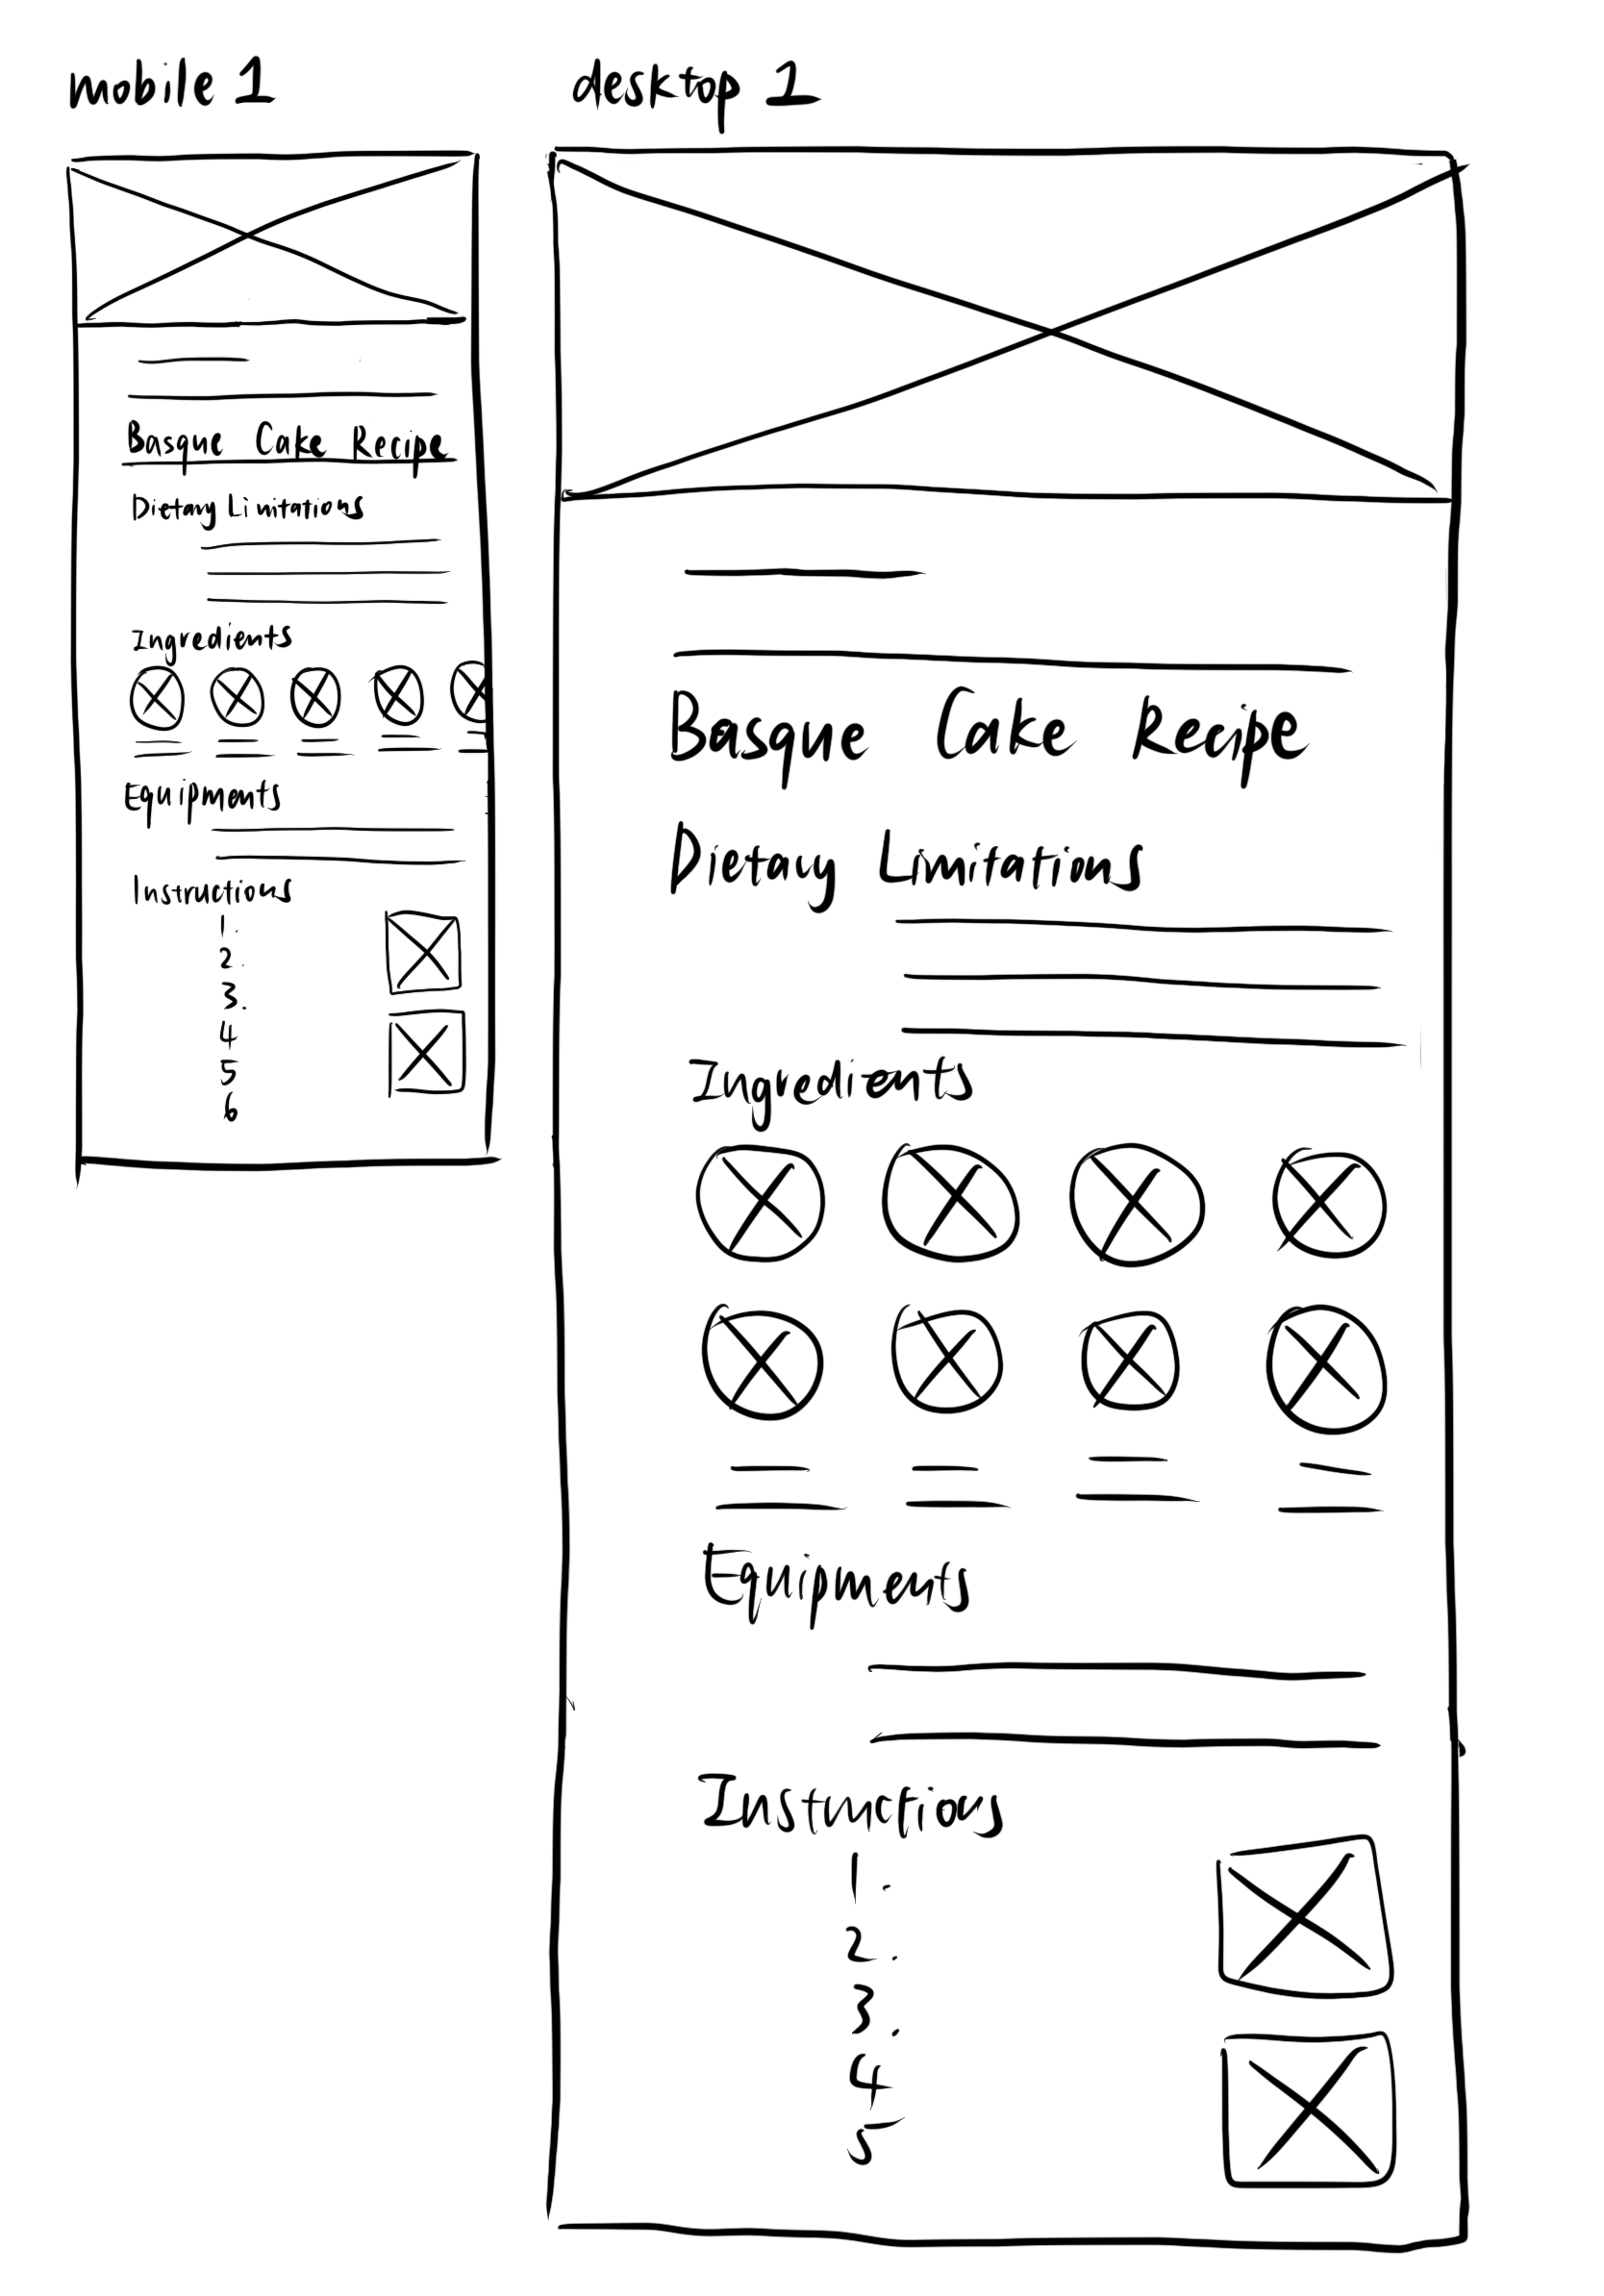 mobile 1
Basque Cake Recipe
Dietary Limitations
Ingredients
Equipments
Instructions
1.
2.
3.
4
5
6
desktop 1
Basque Cake Recipe
Dietary Limitations
Ingredients
Equipments
Instructions
1.
2.
3.
4
5